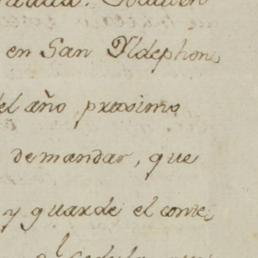 en San Yldephon
el año proximo
demandar, que
y guarde el conte,
l cedula